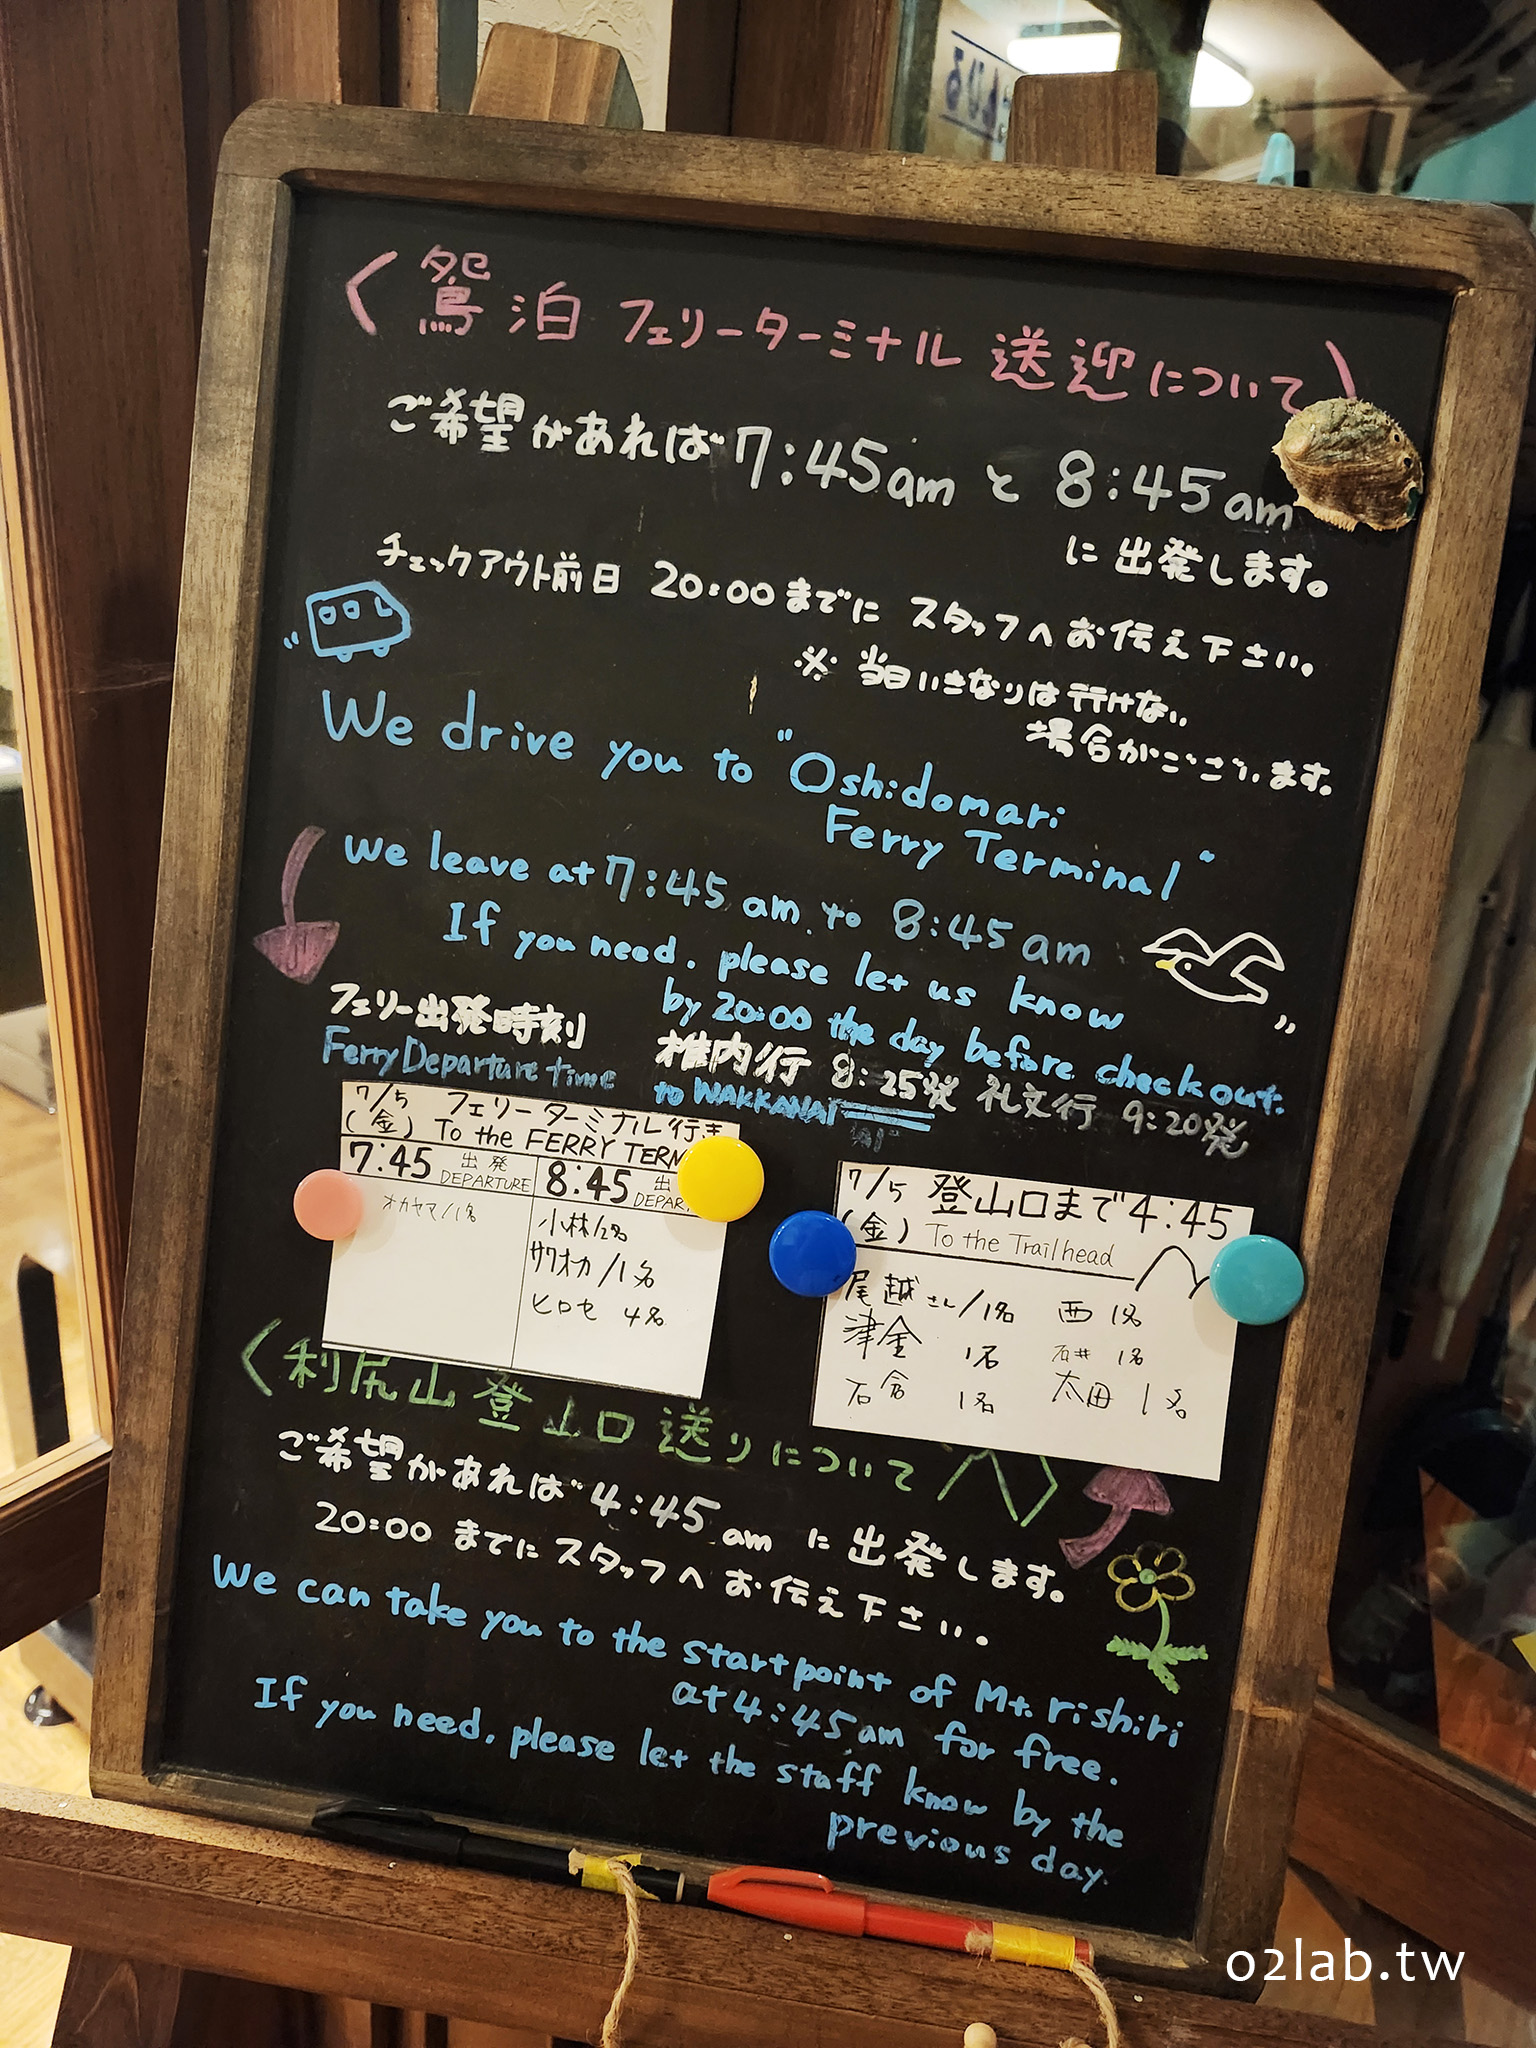 〈鴛泊 フェリーターミナル 送迎について〉
ご希望があれば 7:45am と 8:45am
に出発します。
チェックアウト前日 20:00 までに スタッフへお伝え下さい。
※ 当日いきなりは行けない
場合がございます。
We drive you to "Oshidomari
Ferry Terminal"
We leave at 7:45 am to 8:45 am
If you need, please let us know
by 20:00 the day before checkout.
フェリー出発時刻
Ferry Departure time
稚内行 8:25発 礼文行 9:20発
to WAKKANAI
7/5 フェリーターミナル行き
(金) To the FERRY TERM
7:45 出発 DEPARTURE
8:45 出 DEPAR
オカヤマ/1名
小林/2名
サワオカ/1名
ヒロセ 4名
7/5 登山口まで 4:45
(金) To the Trailhead
尾越さん/1名 西 1名
津金 1名 石井 1名
石倉 1名 太田 1名
〈利尻山登山口送りについて
ご希望があれば 4:45 am に出発します。
20:00 までにスタッフへお伝え下さい。
We can take you to the start point of Mt. rishiri
at 4:45 am for free.
If you need, please let the staff know by the
previous day.
o2lab.tw